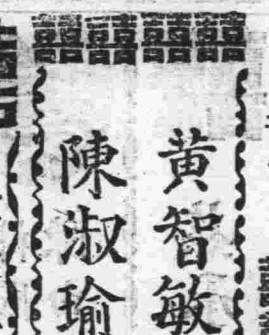 囍囍囍囍
黄智敏
陳淑瑜